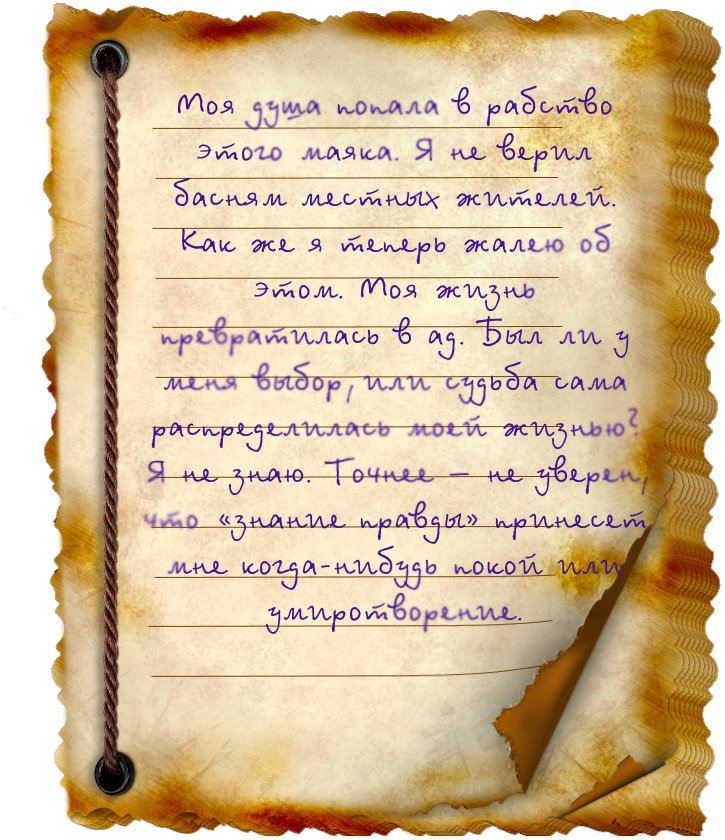 Моя душа попала в рабство
этого маяка. Я не верил
басням местных жителей.
Как же я теперь жалею об
этом. Моя жизнь
превратилась в ад. Был ли у
меня выбор, или судьба сама
распределилась моей жизнью?
Я не знаю. Точнее – не уверен,
что «знание правды» принесет
мне когда-нибудь покой или
умиротворение.